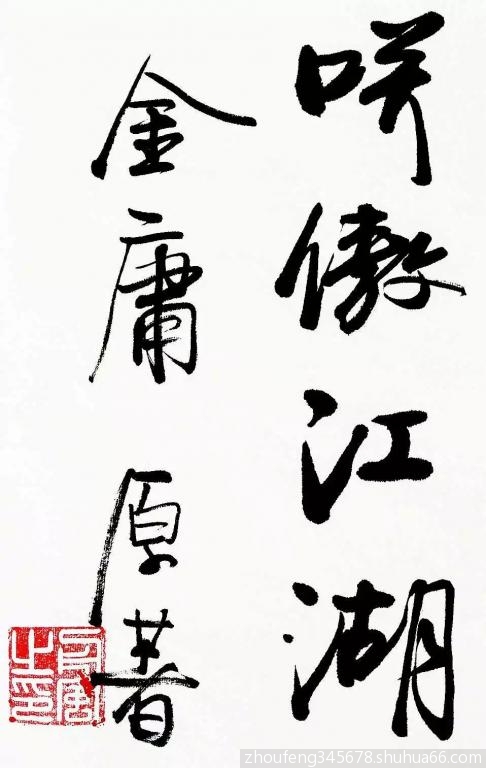 咲傲江湖
金庸 原著
zhoufeng345678.shuhua66.com